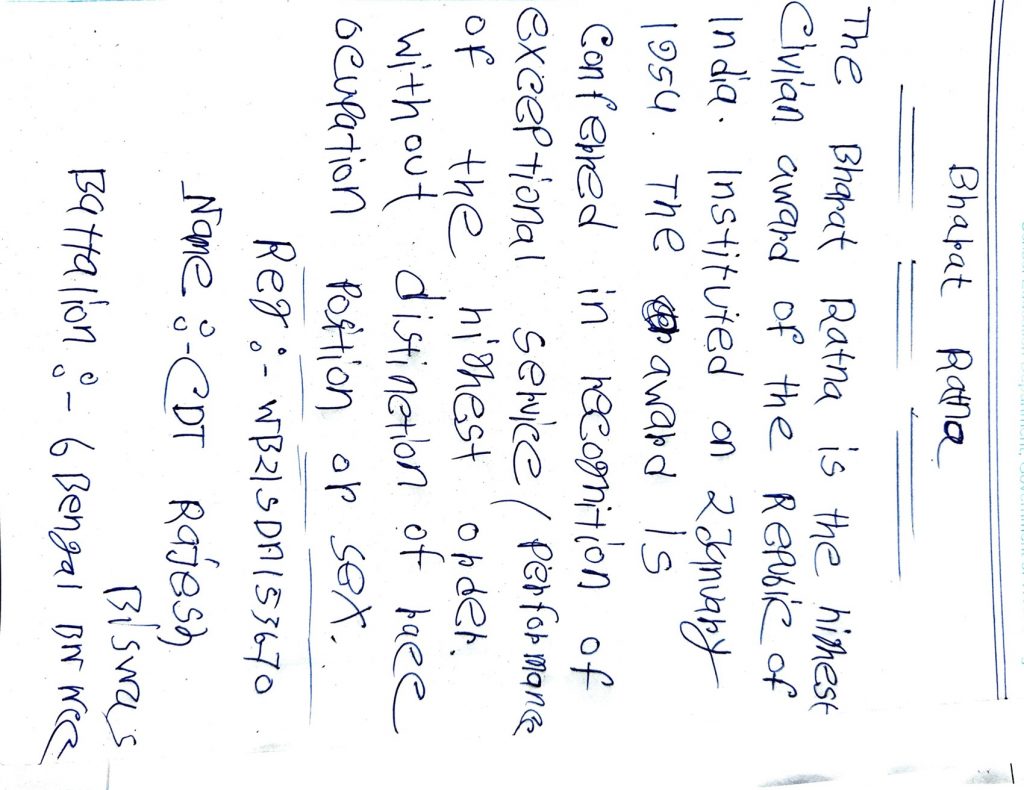 Bharat Ratna
The Bharat Ratna is the highest
Civilian award of the Repubic of
India. Instituted on 2 January
1954. The award is
Conferred in recognition of
exceptional service / performance
of the highest order.
with out distinction of race
occupation position or sex.
Reg :- WB21SDA153670
Name :- CDT Rajesh
Biswas
Battalion :- 6 Bengal BN NCC